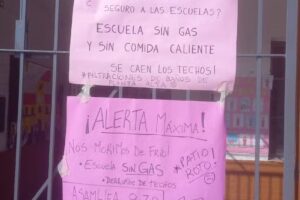 ¿ SEGURO A LAS ESCUELAS?
ESCUELA SIN GAS
Y SIN COMIDA CALIENTE
SE CAEN LOS TECHOS!
* FILTRACIONES DE BAÑOS DE
PLANTA ALTA
¡ALERTA MÁXIMA!
NOS MORIMOS DE FRÍO!
• ESCUELA SIN GAS
• DERRUMBE DE TECHOS
* PATIO ROTO!
ASAMBLEA